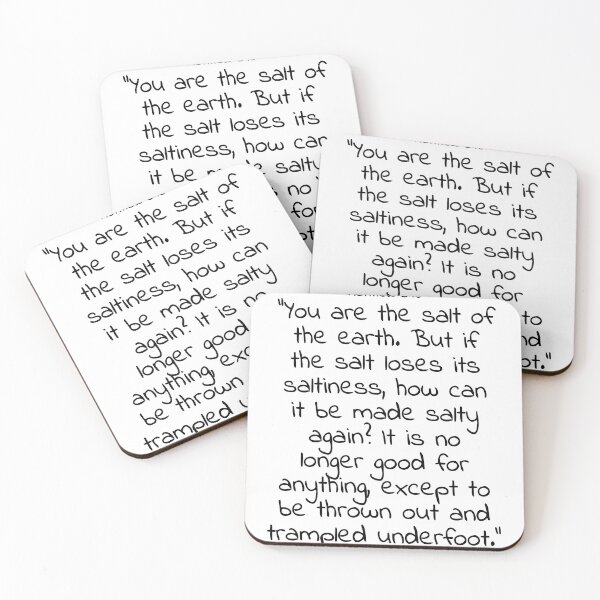 "You are the salt of
the earth. But if
the salt loses its
saltiness, how can
it be made salty
is no
for
"You are the salt of
the earth. But if
the salt loses its
saltiness, how can
it be made salty
again? It is no
longer good for
to
"You are the salt of
the earth. But if
the salt loses its
saltiness, how can
it be made salty
again? It is no
longer good
anything, exc
be thrown
trampled u
"You are the salt of
the earth. But if
the salt loses its
saltiness, how can
it be made salty
again? It is no
longer good for
anything, except to
be thrown out and
trampled underfoot."